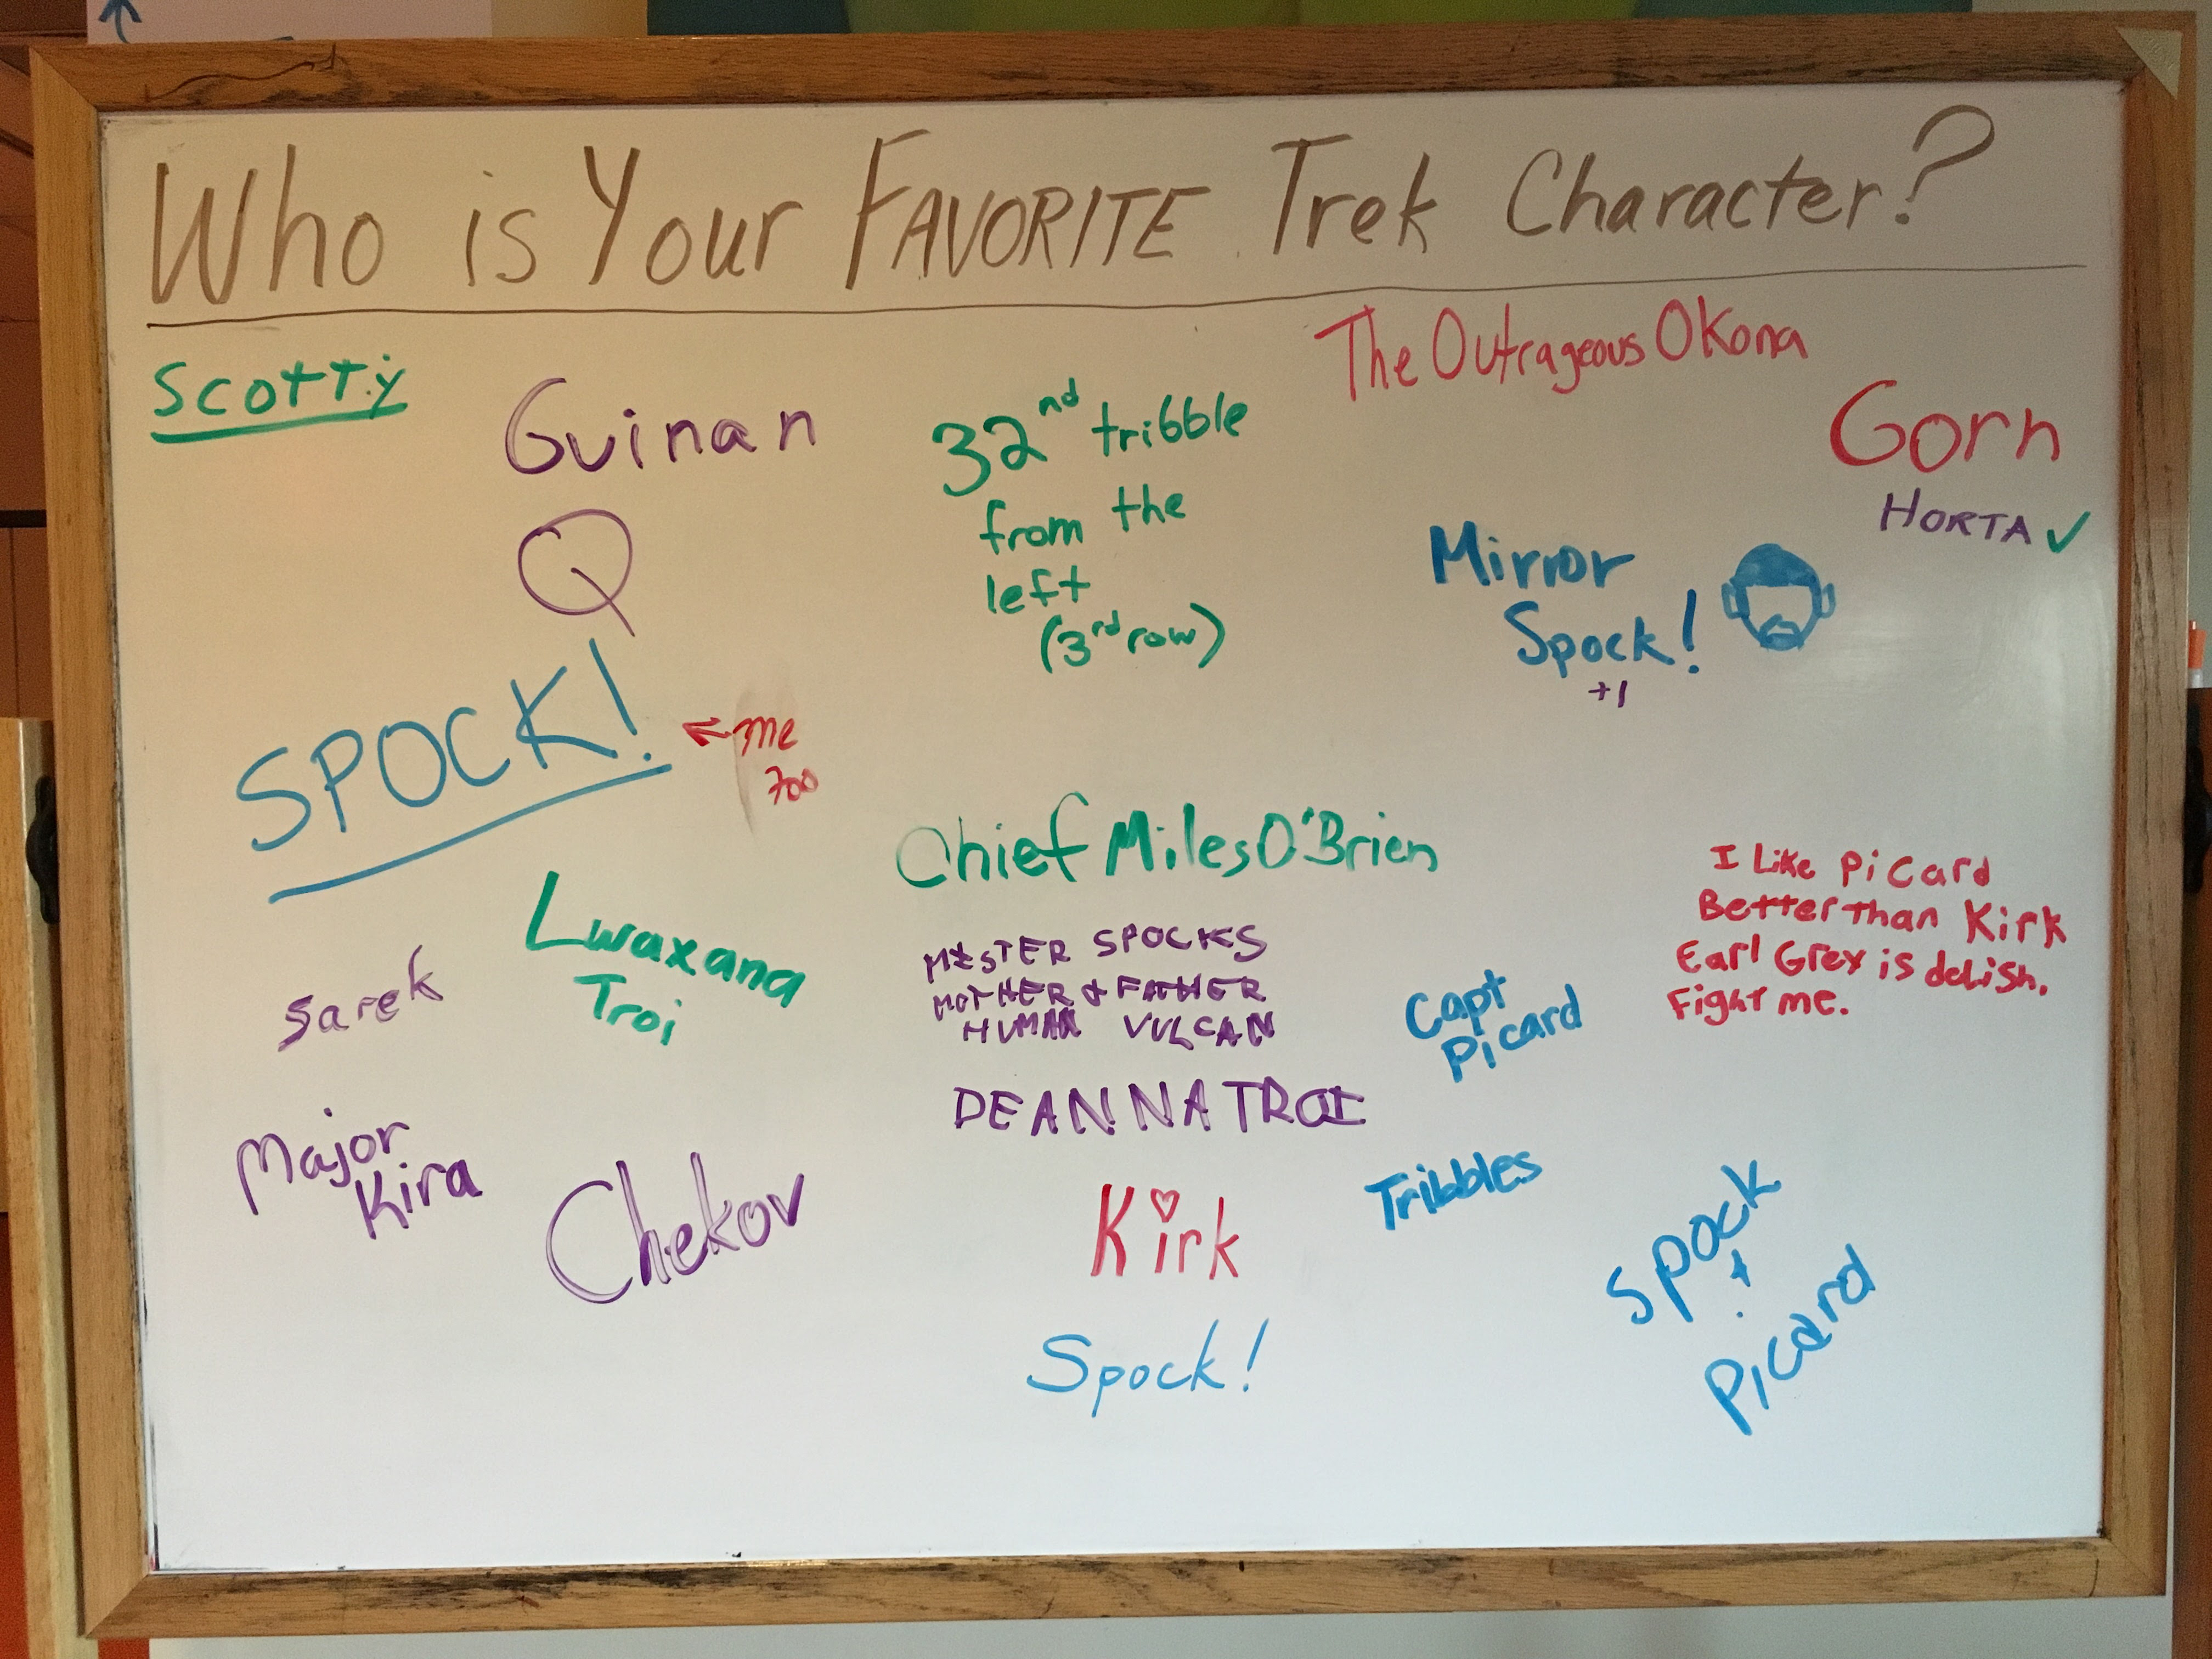 Who is Your FAVORITE Trek Character?
Scotty
Guinan
Q
SPOCK!
← me
too
32nd tribble
from the
left
(3rd row)
The Outrageous Okona
Gorn
HORTA ✓
Mirror
Spock!
+1
Chief Miles O'Brien
Lwaxana
Troi
Sarek
MISTER SPOCKS
MOTHER & FATHER
HUMAN VULCAN
Capt
Picard
I Like Picard
Better than Kirk
Earl Grey is delish.
Fight me.
DEANNA TROI
Major
Kira
Chekov
Kirk
Tribbles
Spock!
Spock
+
Picard